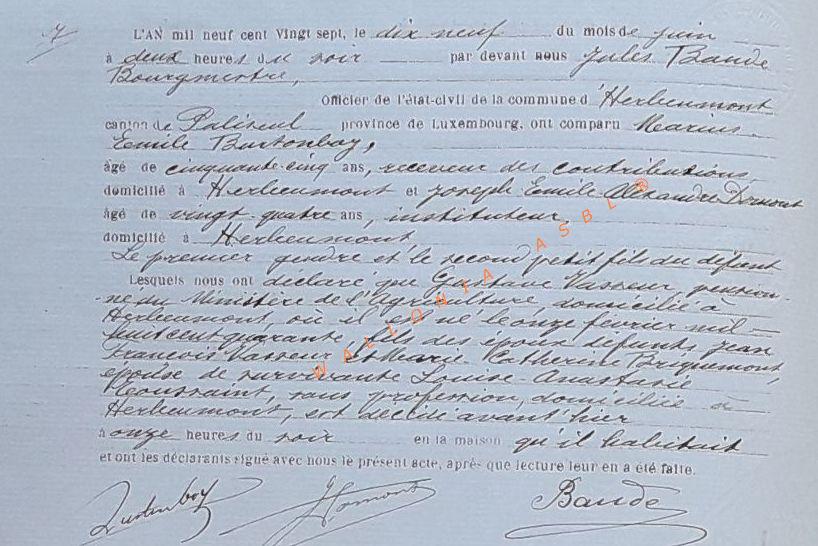 7
L'AN mil neuf cent Vingt sept, le dix neuf du mois de juin
à deux heures du soir par devant nous Jules Baude
Bourgmestre,
Officier de l'état-civil de la commune d'Herbeumont
canton de Paliseul province de Luxembourg, ont comparu Marius
Emile Burtonboy,
âgé de cinquante-cinq ans, receveur des contributions
domicilié à Herbeumont et Joseph Emile Alexandre Dormont
âgé de vingt-quatre ans, instituteur,
domicilié à Herbeumont
Le premier gendre et le second petit fils du défunt
Lesquels nous ont déclaré que Gustave Vasseur, pension-
né du Ministère de l'Agriculture, domicilié à
Herbeumont, où il est né le onze février mil
huit cent quarante, fils des époux défunts Jean
François Vasseur et Marie Catherine Bricquemont,
époux de survivante Louise-Anastasie
Toussaint, sans profession, domiciliée à
Herbeumont, est décédé avant hier
à onze heures du soir en la maison qu'il habitait
et ont les déclarants signé avec nous le présent acte, après que lecture leur en a été faite.
Burtonboy Dormont Baude
WALLONIA ASBL ®